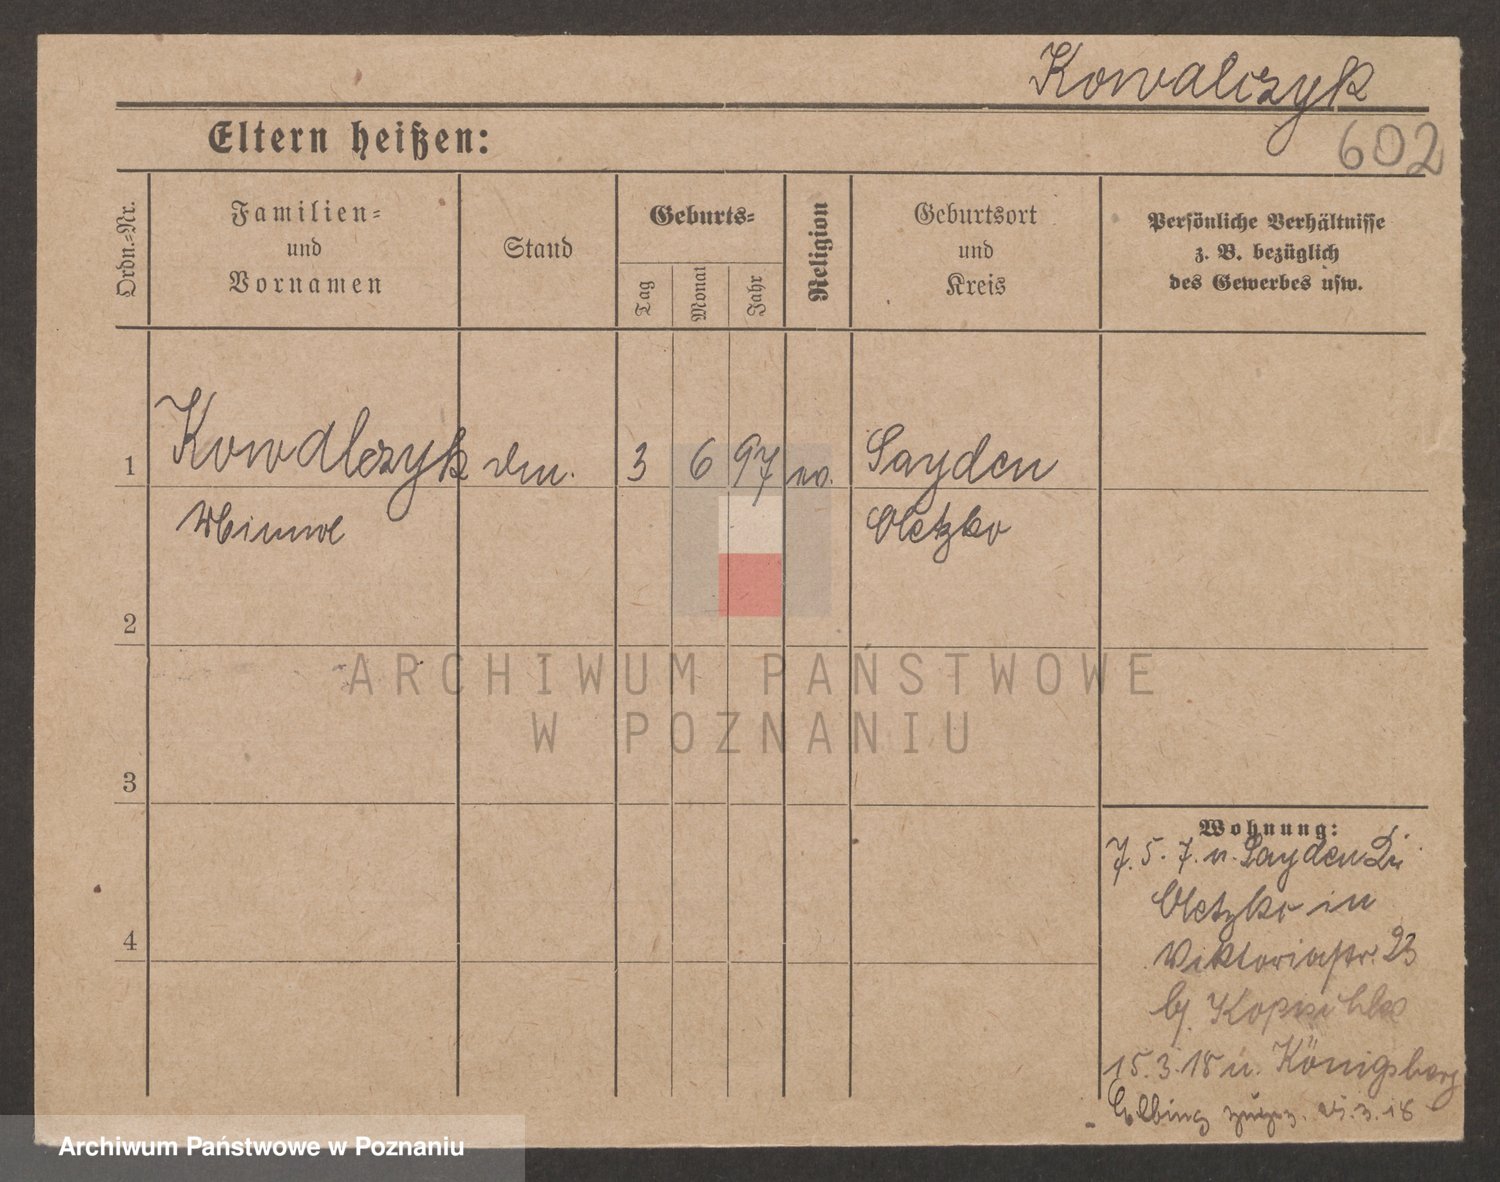 Kowalczyk
602
Eltern heißen:
Ordn.-Nr.
Familien-
und
Vornamen
Stand
Geburts-
Tag
Monat
Jahr
Religion
Geburtsort
und
Kreis
Persönliche Verhältnisse
z. B. bezüglich
des Gewerbes usw.
1
Kowalczyk
3
6
97
Sayden
Oletzko
2
ARCHIWUM PAŃSTWOWE
W POZNANIU
3
Wohnung:
7. 5. 7. n. Sayden
Oletzko in
Viktoriastr. 23
4
15. 3. 18 n. Königsberg
Elbing 3. 18
Archiwum Państwowe w Poznaniu